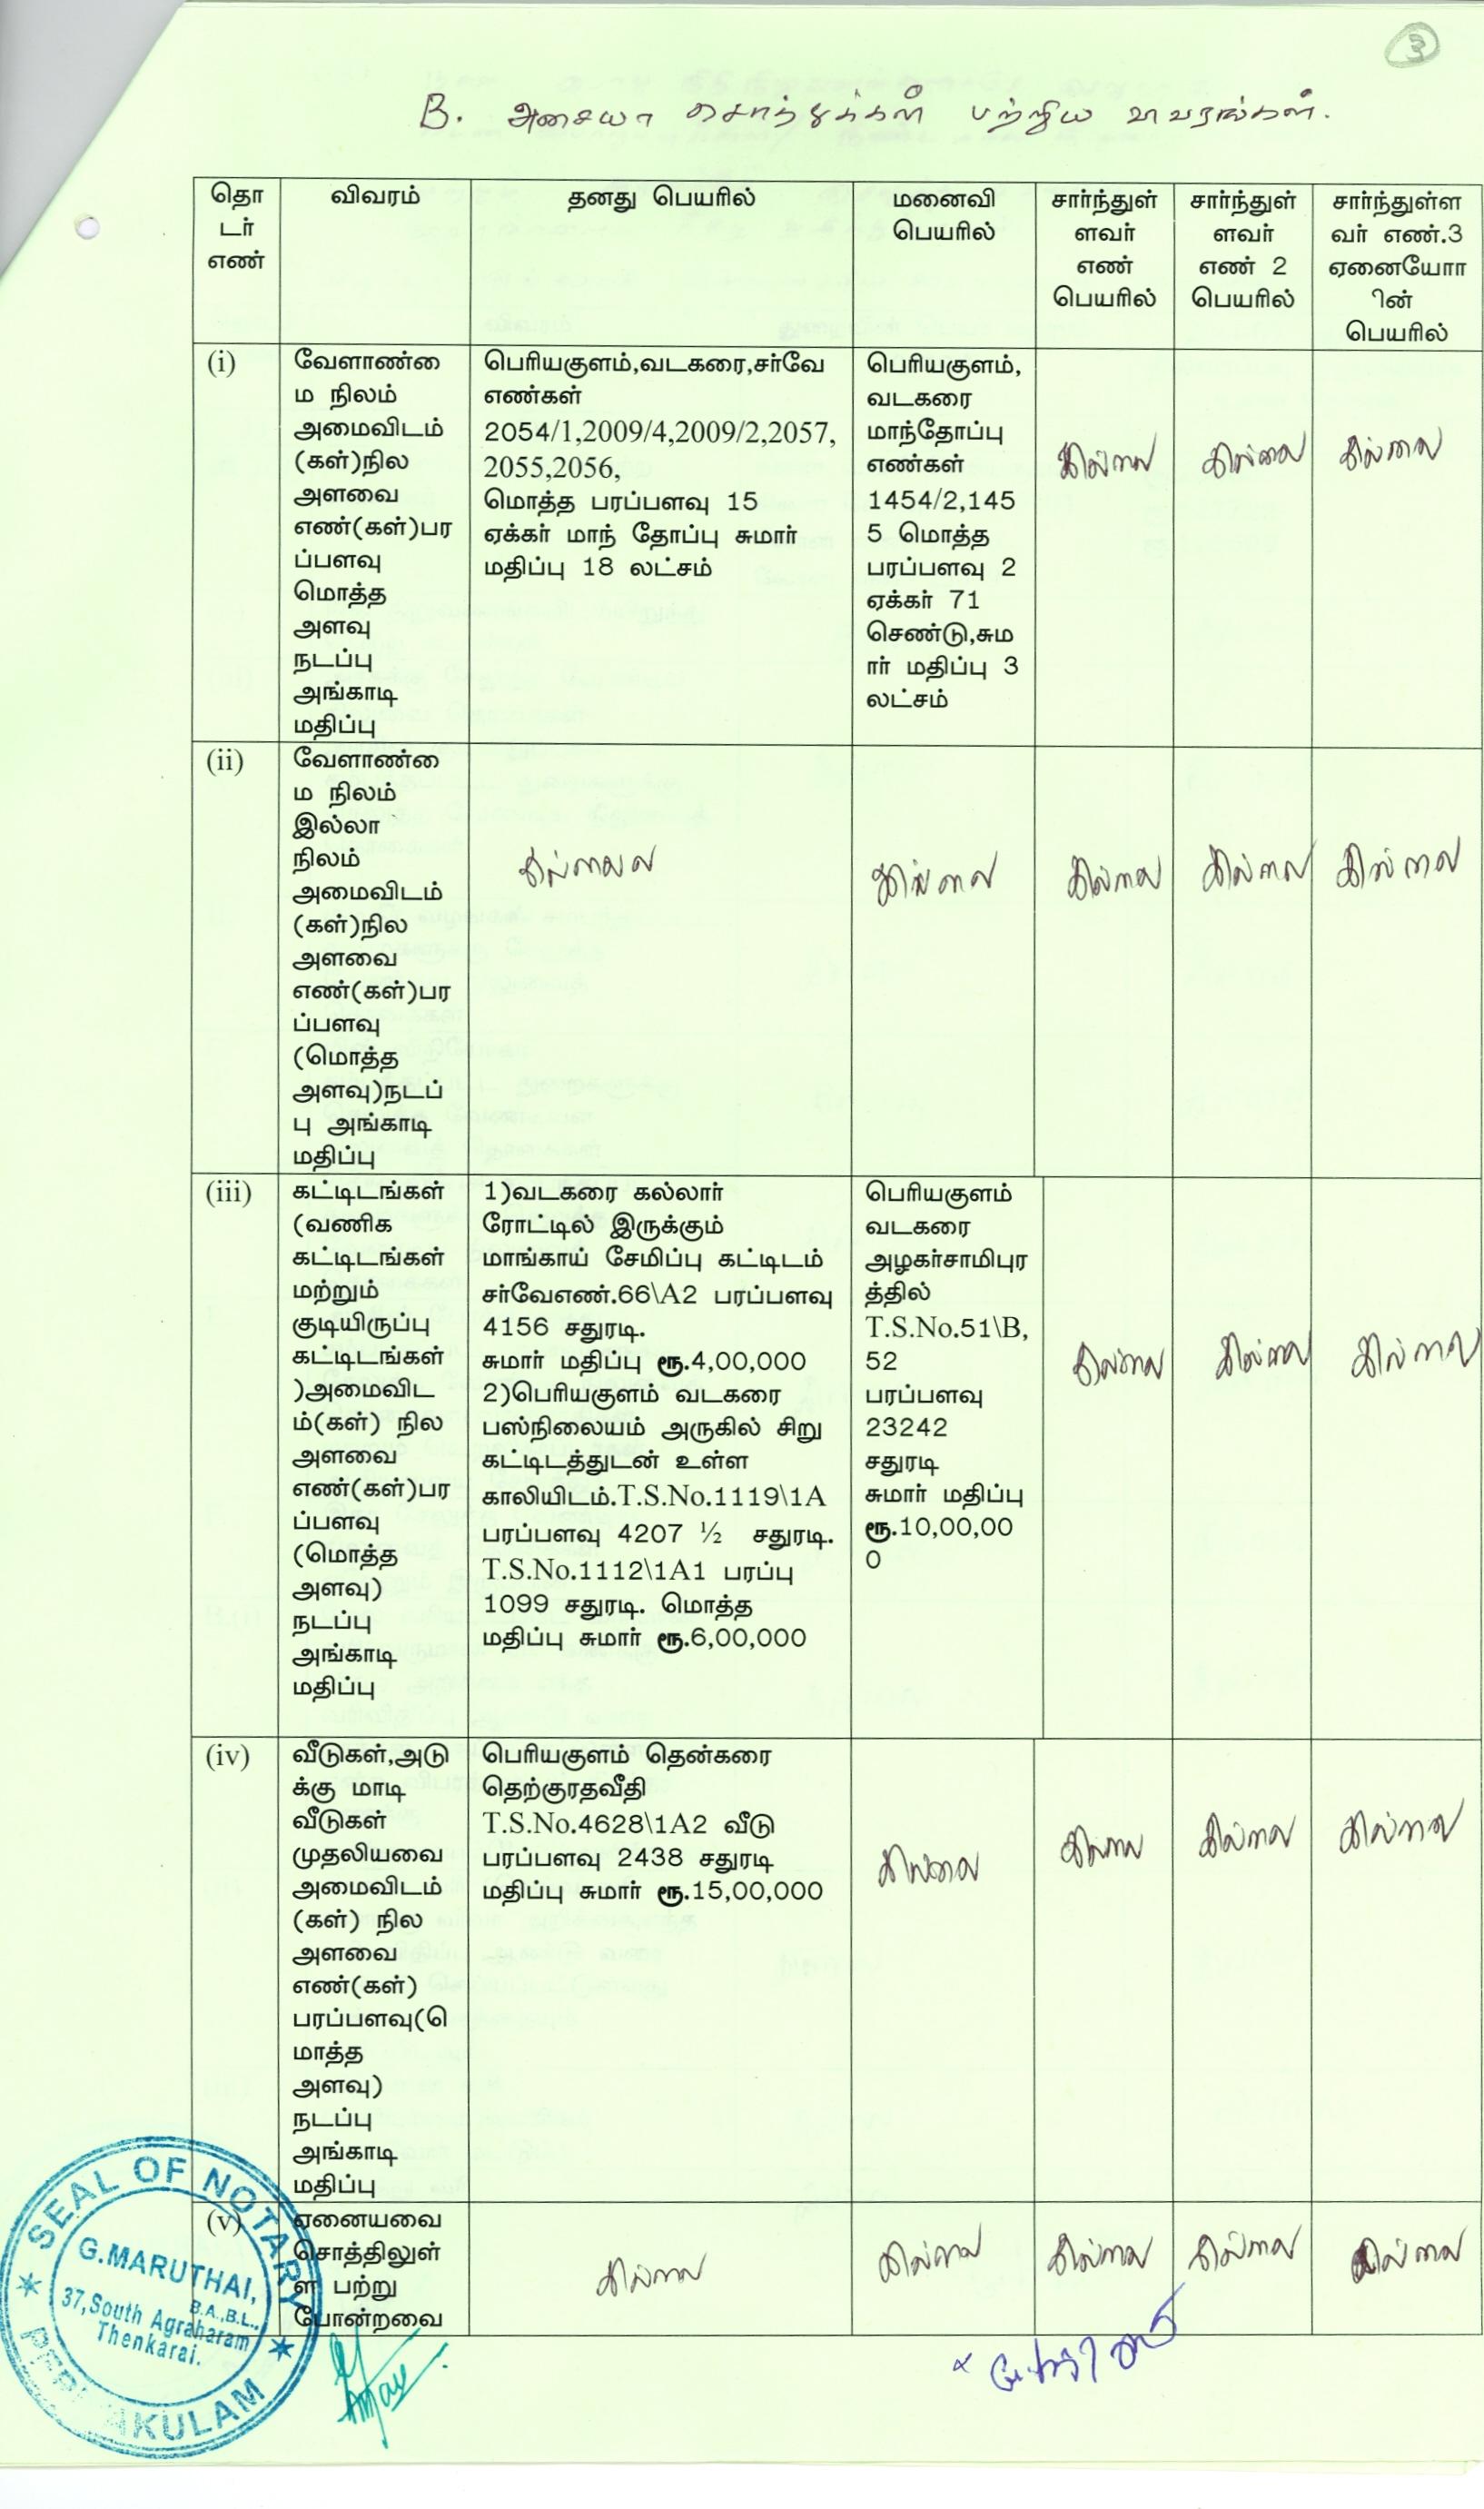 3
B. அசையா சொத்துக்கள் பற்றிய விவரங்கள்.
தொ
டர்
எண்
விவரம்
தனது பெயரில்
மனைவி
பெயரில்
சார்ந்துள்
ளவர்
எண்
பெயரில்
சார்ந்துள்
ளவர்
எண் 2
பெயரில்
சார்ந்துள்ள
வர் எண்.3
ஏனையோா
ின்
பெயரில்
(i)
வேளாண்மை
ம நிலம்
அமைவிடம்
(கள்)நில
அளவை
எண்(கள்)பர
ப்பளவு
மொத்த
அளவு
நடப்பு
அங்காடி
மதிப்பு
பெரியகுளம்,வடகரை,சர்வே
எண்கள்
2054/1,2009/4,2009/2,2057,
2055,2056,
மொத்த பரப்பளவு 15
ஏக்கர் மாந் தோப்பு சுமார்
மதிப்பு 18 லட்சம்
பெரியகுளம்,
வடகரை
மாந்தோப்பு
எண்கள்
1454/2,145
5 மொத்த
பரப்பளவு 2
ஏக்கர் 71
செண்டு,சும
ார் மதிப்பு 3
லட்சம்
இல்லை
இல்லை
இல்லை
(ii)
வேளாண்மை
ம நிலம்
இல்லா
நிலம்
அமைவிடம்
(கள்)நில
அளவை
எண்(கள்)பர
ப்பளவு
(மொத்த
அளவு)நடப்
பு அங்காடி
மதிப்பு
இல்லை
இல்லை
இல்லை
இல்லை
இல்லை
(iii)
கட்டிடங்கள்
(வணிக
கட்டிடங்கள்
மற்றும்
குடியிருப்பு
கட்டிடங்கள்
)அமைவிட
ம்(கள்) நில
அளவை
எண்(கள்)பர
ப்பளவு
(மொத்த
அளவு)
நடப்பு
அங்காடி
மதிப்பு
1)வடகரை கல்லார்
ரோட்டில் இருக்கும்
மாங்காய் சேமிப்பு கட்டிடம்
சர்வேஎண்.66\A2 பரப்பளவு
4156 சதுரடி.
சுமார் மதிப்பு ரூ.4,00,000
2)பெரியகுளம் வடகரை
பஸ்நிலையம் அருகில் சிறு
கட்டிடத்துடன் உள்ள
காலியிடம்.T.S.No.1119\1A
பரப்பளவு 4207 ½ சதுரடி.
T.S.No.1112\1A1 பரப்பு
1099 சதுரடி. மொத்த
மதிப்பு சுமார் ரூ.6,00,000
பெரியகுளம்
வடகரை
அழகர்சாமிபுர
த்தில்
T.S.No.51\B,
52
பரப்பளவு
23242
சதுரடி
சுமார் மதிப்பு
ரூ.10,00,00
0
இல்லை
இல்லை
இல்லை
(iv)
வீடுகள்,அடு
க்கு மாடி
வீடுகள்
முதலியவை
அமைவிடம்
(கள்) நில
அளவை
எண்(கள்)
பரப்பளவு(ெ
மாத்த
அளவு)
நடப்பு
அங்காடி
மதிப்பு
பெரியகுளம் தென்கரை
தெற்குரதவீதி
T.S.No.4628\1A2 வீடு
பரப்பளவு 2438 சதுரடி
மதிப்பு சுமார் ரூ.15,00,000
இல்லை
இல்லை
இல்லை
இல்லை
(v)
ஏனையவை
சொத்திலுள்
ள பற்று
போன்றவை
இல்லை
இல்லை
இல்லை
இல்லை
இல்லை
SEAL OF NOTARY
G.MARUTHAI,
B.A.,B.L.,
37,South Agraharam
Thenkarai.